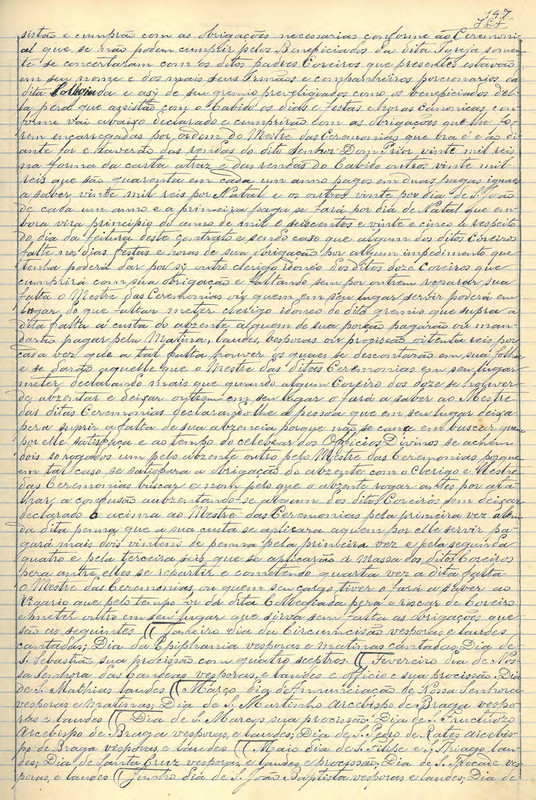 197
sistão e cumprão com as obrigações necessarias conforme ao Ceremoni
al que se não podem cumprir pelos Beneficiados da dita Igreja somen
te se concertaram com os ditos padres Coreiros que presentes estavão
em seu nome e dos mais seus Irmãos e companheiros porcionarios da
dita e asy de seu gremio pera como os beneficiados del
la, pera que assistão com o Cabido os dias e festas e horas Canonicas, con
forme vai abaixo declarado e cumprirão com as obrigações que lhe fo
rem encarregadas por ordem do Mestre das Ceremonias que ora é e ao di
ante for e haverão das rendas do dito Senhor Dom Prior vinte mil reis
na forma da carta atraz e das rendas do Cabido outros vinte mil
reis que são quarenta em cada um anno pagos em duas pagas iguaes
a saber, vinte mil reis por Natal e os outros vinte por dia de S. João
de cada um anno e a primeira paga se fará por dia de Natal que em
bora vira principio do anno de mil e seiscentos e vinte e cinco a respeito
do dia da feitura deste contrato e sendo caso que algum dos ditos Coreiros
falte nos dias festas e horas de sua obrigação por algum impedimento que
tenha poderá dar por sy outro clerigo idoneo dos ditos doze Coreiros que
cumprirá com sua obrigação e faltando sem por outrem reparar sua
falta o Mestre das Ceremonias ou quem em seu lugar servir poderá em
lugar do que faltar meter clerigo idoneo do dito gremio que supra a
dita falta á custa do abzente alguem de sua porção pagarão ou man
darão pagar pela Matina, laudes, besporas ou procissão oitenta reis por
cada vez que a tal falta houver os quaes se descontarão em sua folha
e se darão aquelle que o Mestre das ditas Ceremonias em seu lugar
meter, declarando mais que quando algum Coreiro dos doze se houver
de abzentar e deixar outrem em seu lugar o fará a saber ao Mestre
das ditas Ceremonias declarando-lhe a pessoa que em seu lugar deixa
pera suprir a falta de sua abzencia porque não se cance em buscar quem
por elle satisfaça e ao tempo do celebrar dos Officios Divinos se achem
dois se rogados um pelo abzente outro pelo Mestre das Ceremonias porque
em tal caso se satisfará a obrigação do abzente com o Clerigo e Mestre
das Ceremonias buscar e nom pelo que o abzente rogar antes por ata
lhar, a confusão auzentando-se algum dos ditos Coreiros sem deixar
declarado o acima ao Mestre das Ceremonias pela primeira vez alem
da dita penna que a sua custa se aplicara aquem por elle servir pa
gará mais dois vintens de penna pela primeira vez e pela segunda
quatro e pela terceira seis que se aplicarão á Massa dos ditos Coreiros
pera antre elles se repartir e cometendo quarta vez a dita falta
o Mestre das Ceremonias, ou quem seu cargo tiver o fará a saber ao
Vigario que pelo tempo for da dita Collegiada pera o riscar de Coreiro
e meter outro em seu lugar que sirva sem falta as obrigações que
são as seguintes Janeiro dia da Circumcisão vesporas e laudes
cantadas, Dia da Epiphania vesporas e matinas cantadas, Dia de
S. Sebastião sua procissão com quatro sceptros. Fevereiro dia de Nos
sa Senhora das Candeas vesporas, e laudes e officio e sua procissão. Dia
de S. Mathias laudes Março, dia d'Annunciação de Nossa Senhora
vesporas e matinas; Dia de S. Martinho Arcebispo de Braga vespo
ras e laudes Dia de S. Marcos sua procissão; Dia de S. Fructuoso
Arcebispo de Braga vesporas, e laudes; Dia de S. Pedro de Rates arcebis
po de Braga vesporas e laudes Maio dia de S. Filipe e S. Thiago lau
des; Dia de Santa Cruz vesporas, e laudes e procissão; Dia de S. vespo
ras, e laudes Junho dia de S. João Baptista vesporas e laudes; Dia de